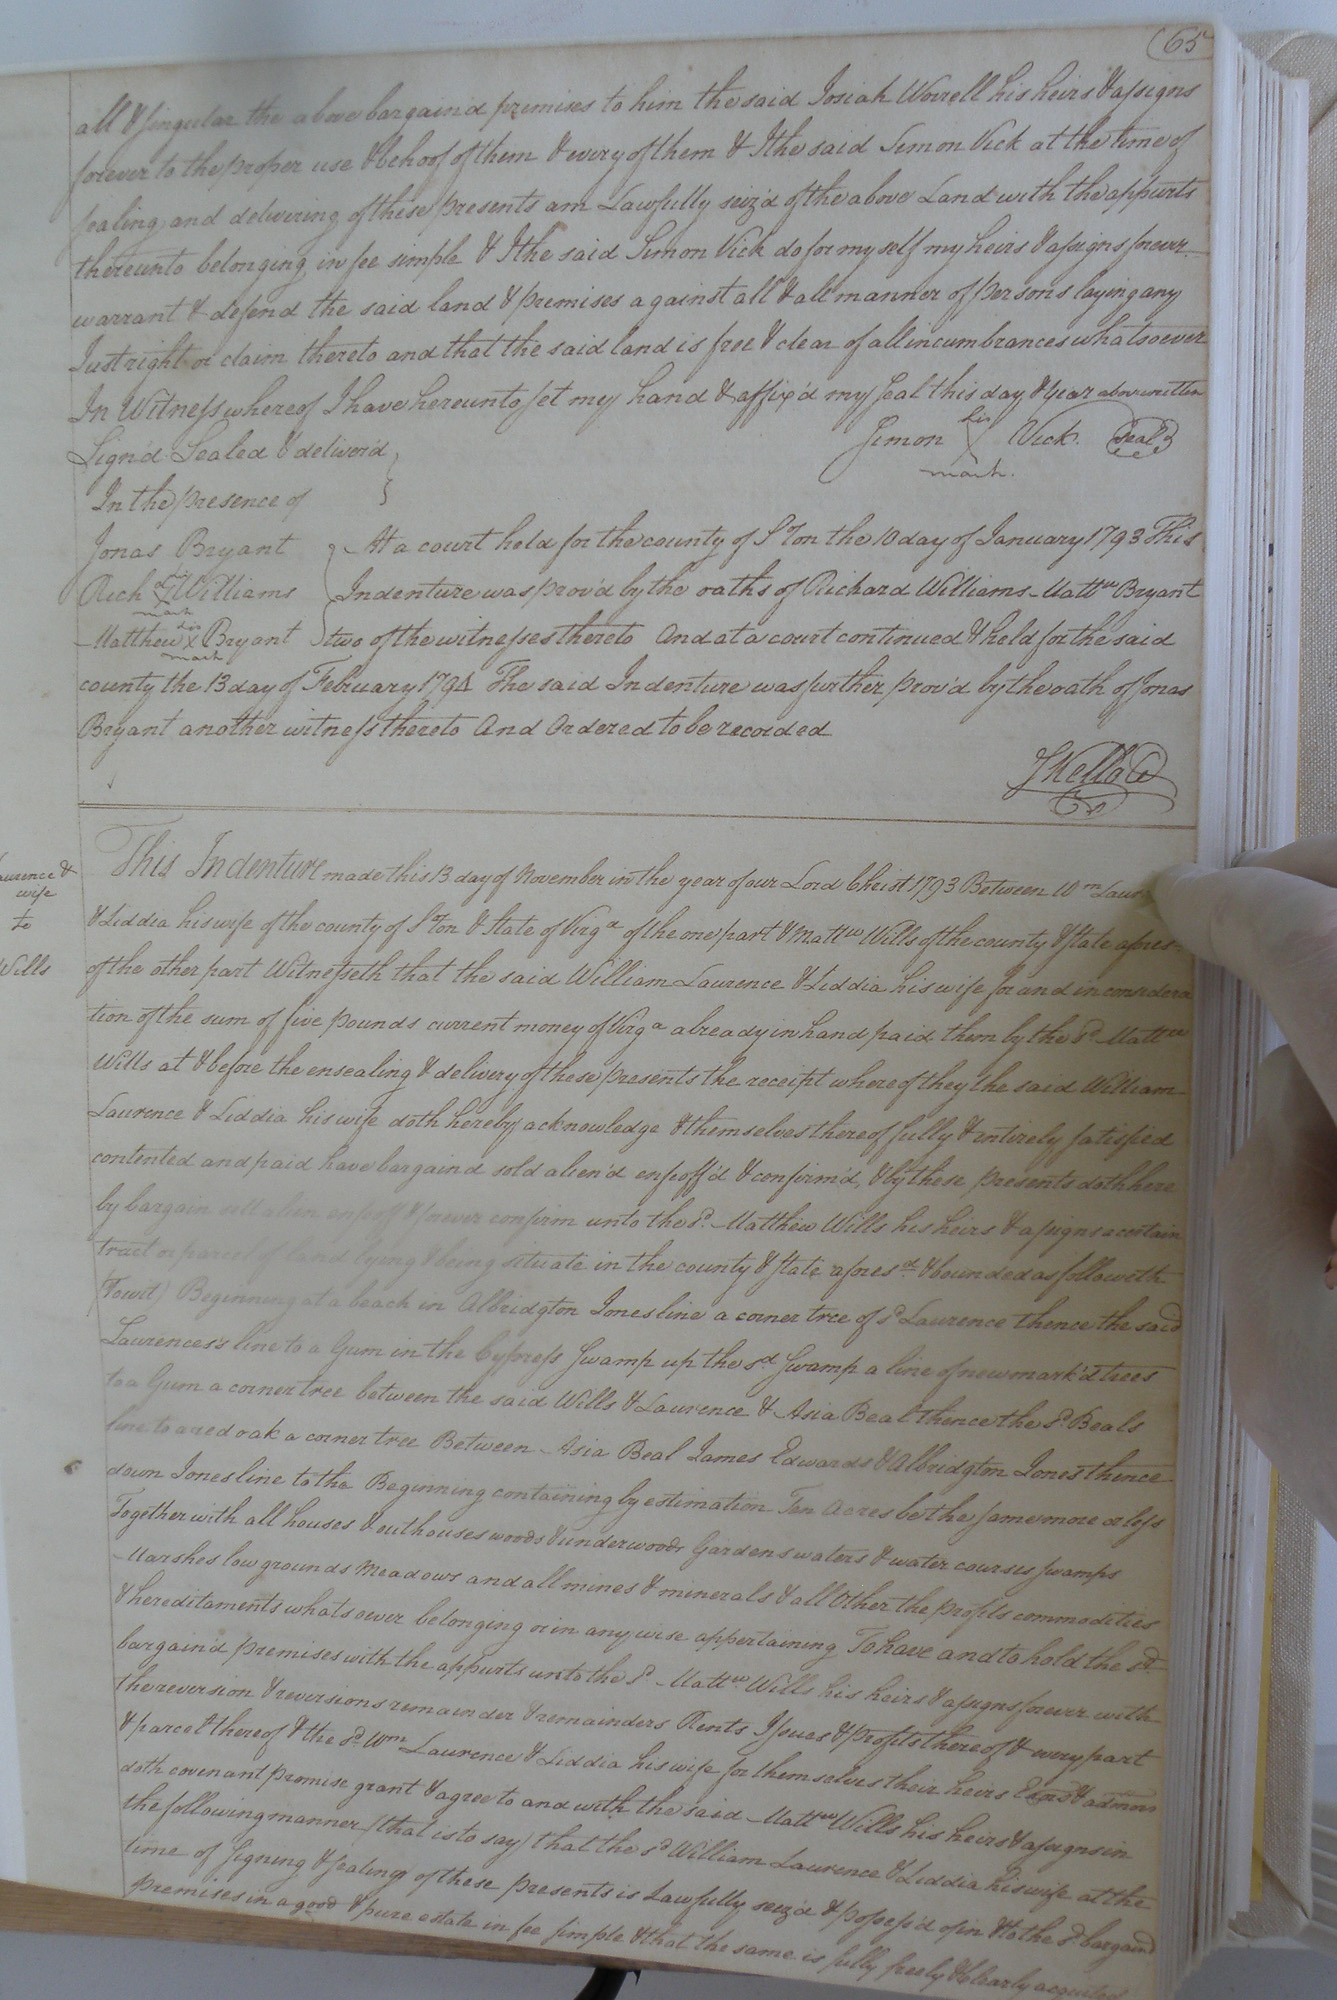 65
all & singular the above bargain'd premises to him the said Josiah Worrell his heirs & assigns
forever to the proper use & behoof of them & every of them & I the said Simon Vick at the time of
sealing and delivering of these presents am Lawfully seiz'd of the above Land with the appurts
thereunto belonging in fee simple & I the said Simon Vick do for my self my heirs & assigns forever
warrant & defend the said land & premises against all & all manner of persons laying any
Just right or claim thereto and that the said land is free & clear of all incumbrances whatsoever
In Witness whereof I have hereunto set my hand & affix'd my seal this day & year above written
Sign'd Sealed & deliver'd
In the presence of
Simon his X mark Vick. Seal
Jonas Bryant
Rich his Williams mark
Matthew his X mark Bryant
At a court held for the county of S°ton the 10 day of January 1793 This
Indenture was prov'd by the oaths of Richard Williams Mattw Bryant
two of the witnesses thereto And at a court continued & held for the said
county the 13 day of February 1794 The said Indenture was further prov'd by the oath of Jonas
Bryant another witness thereto And Ordered to be recorded
J Kello C
Laurence &
wife
to
Wills
This Indenture made this 13 day of November in the year of our Lord Christ 1793 Between Wm Laur
& Liddia his wife of the county of S°ton & State of Virga of the one part & Mattw Wills of the county & state afores
of the other part Witnesseth that the said William Laurence & Liddia his wife for and in considera
tion of the sum of five pounds current money of Virga already in hand paid them by the sd. Mattw
Wills at & before the ensealing & delivery of these presents the receipt whereof they the said William
Laurence & Liddia his wife doth hereby acknowledge & themselves thereof fully & entirely satisfied
contented and paid have bargaind sold alien'd enfeoff'd & confirm'd, & by these presents doth here
by bargain sell alien enfeoff & forever confirm unto the sd. Matthew Wills his heirs & assigns a certain
tract or parcel of land lying & being situate in the county & state aforesd. & bounded as followith
(Towit) Beginning at a beach in Albridgton Jones line a corner tree of sd Laurence thence the said
Laurences's line to a Gum in the Cypress Swamp up the sd Swamp a line of new mark'd trees
to a Gum a corner tree between the said Wills & Laurence & Asia Beal thence the sd. Beals
line to a red oak a corner tree Between Asia Beal James Edwards & Albridgton Jones thence
down Jones line to the Beginning containing by estimation Ten Acres be the same more or less
Together with all houses & outhouses woods & underwoods Gardens waters & water courses swamps
Marshes low grounds Meadows and all mines & minerals & all Other the profits commodities
& hereditaments whatsoever belonging or in any wise appertaining To have and to hold the sd
bargain'd premises with the appurts unto the sd. Mattw. Wills his heirs & assigns forever with
the reversion & reversions remainder & remainders Rents Issues & profits thereof & every part
& parcel thereof & the sd. Wm Laurence & Liddia his wife for themselves their heirs Exrs & admors
doth covenant promise grant & agree to and with the said Mattw Wills his heirs & assigns in
the following manner (that is to say) that the sd William Laurence & Liddia his wife at the
time of signing & sealing of these presents is Lawfully seiz'd & possess'd of in & to the sd. bargaind
premises in a good & pure estate in fee simple & that the same is fully freely & clearly acquitted